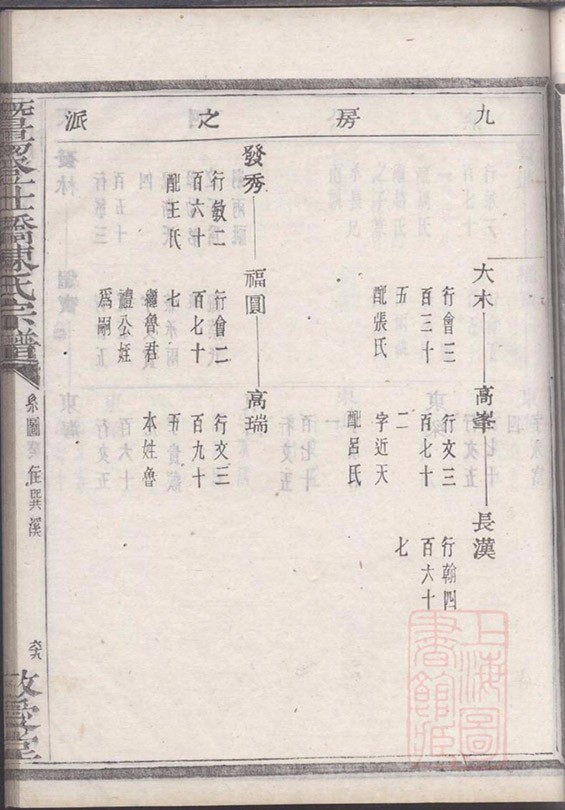 九房之派
大木
行會三
百三十
五
配張氏
高峯
行文三
百七十
二
字近天
配呂氏
長漢
行翰四
百六十
七
發秀
行敏二
百六十
配王氏
福圓
行會二
百七十
七
繼魯君
禮公姪
為嗣
高瑞
行文三
百九十
五
本姓魯
暨陽
橋陳氏宗譜
系圖
住巽溪
敬愛堂
上海圖書館藏